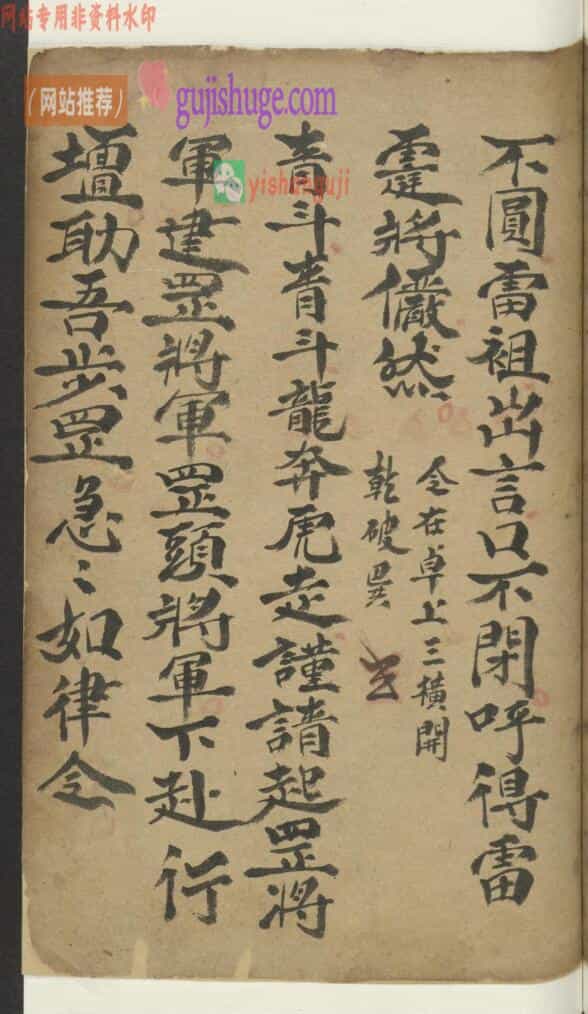 网站专用非资料水印
（网站推荐）
gujishuge.com
yishuguji
不圓雷祖出言口不閉呼得雷
霆將儼然
令在卓上三橫開
乾破巽
青斗青斗龍奔虎走謹請起罡將
軍建罡將軍罡頭將軍下赴行
壇助吾步罡急〻如律令